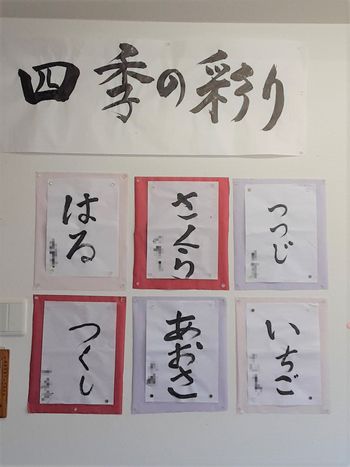 四季の彩り
はる
さくら
つつじ
つくし
あおさ
いちご